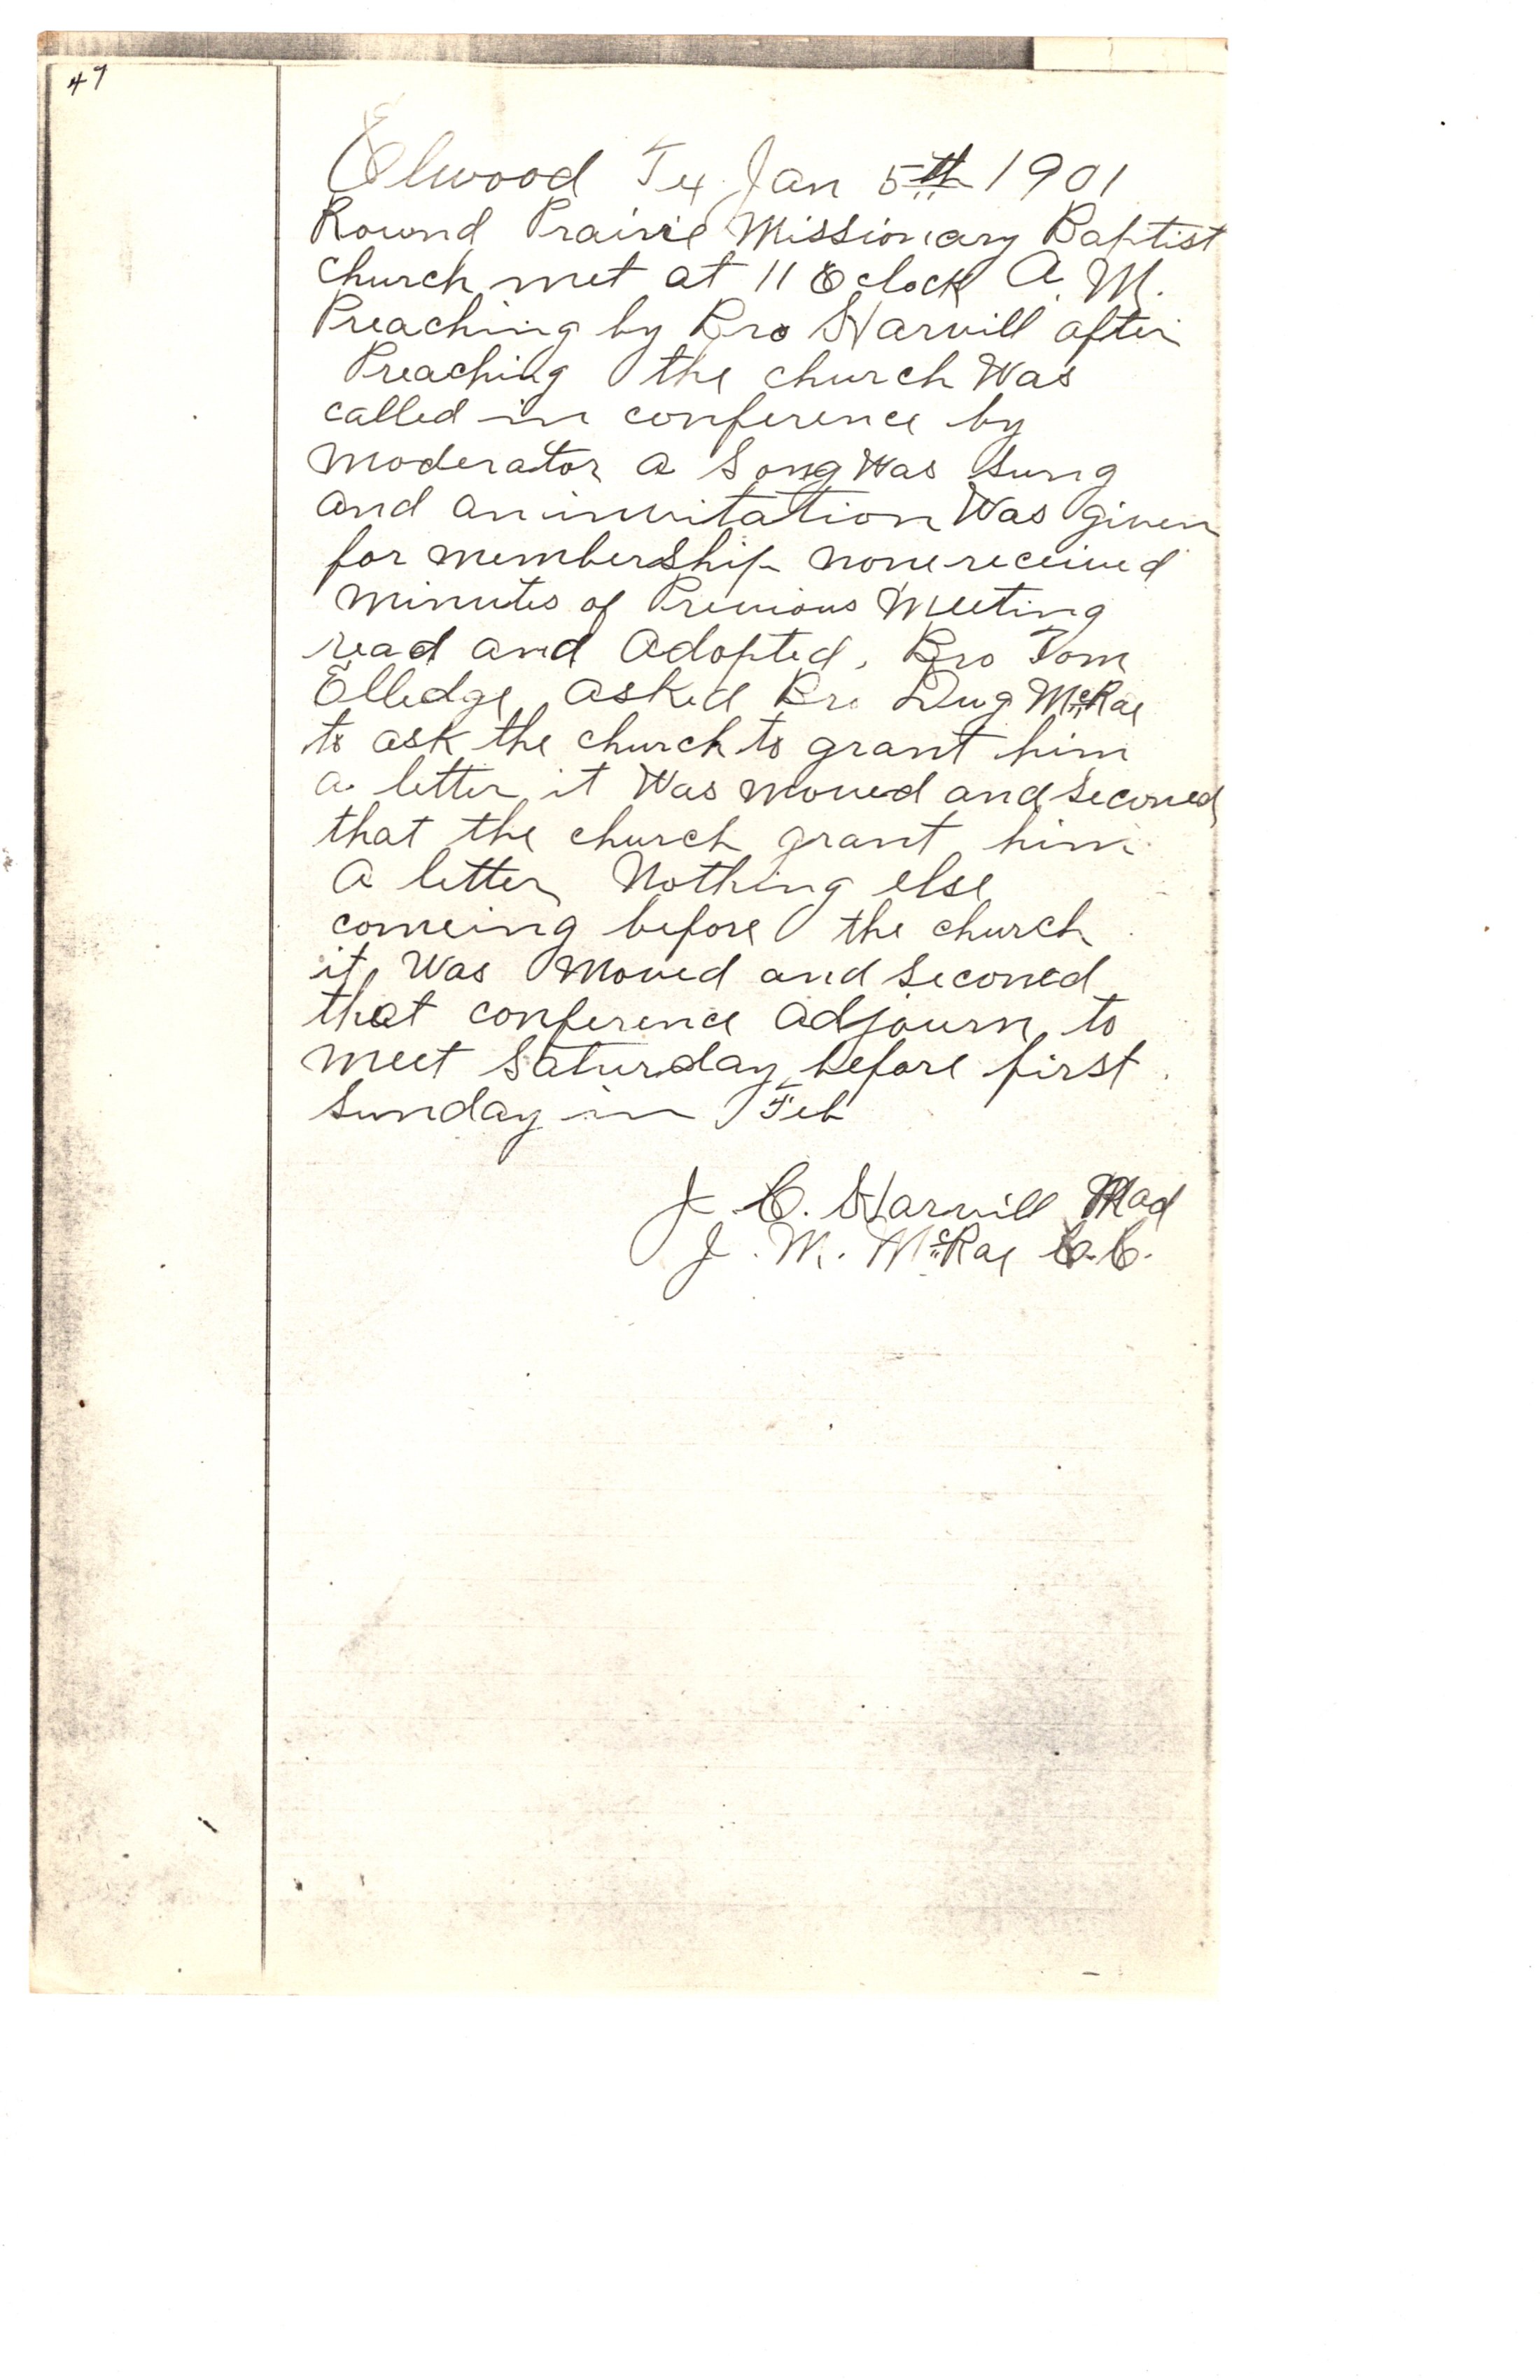 47
Elwood Tex Jan 5th 1901
Round Prairie Missionary Baptist
church met at 11 O clock A. M.
Preaching by Bro Harvill after
Preaching the church Was
called in conference by
moderator a Song Was Sung
and an invitation Was given
for memberShip none received
minutes of Previous Meeting
read and Adopted. Bro Tom
Elledge asked Bro Dug McRae
to ask the church to grant him
a letter it Was moved and Seconed
that the church grant him
A letter Nothing else
comeing before the church
it Was Moved and Seconed
that conference Adjourn to
meet Saturday before first
Sunday in Feb
J. C. Harvill Mod
J. M. McRae C.C.